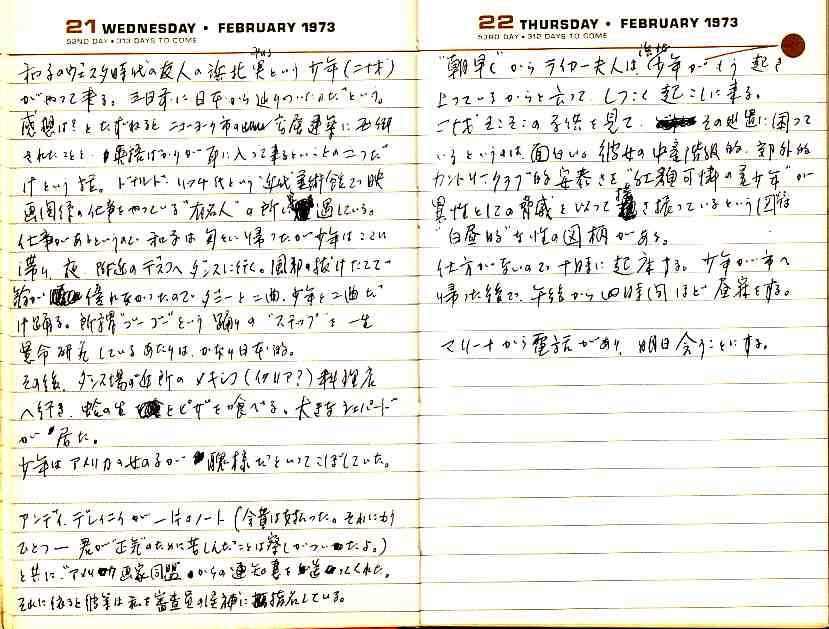 21 WEDNESDAY • FEBRUARY 1973
52ND DAY • 313 DAYS TO COME
和子のヴェスタ時代の友人の浜北実という少年(二十才)
がやって来る。三日前に日本から辿りついたという。
感想は?とたずねるとニューヨーク市の古店建築に
されたことと、英語ばかりが耳に入って来るということの二つだ
けという話。ドナルド・リッチイという近代美術館で映
画関係の仕事をやっている"有名人"の所に過している。
仕事があるというので和子は帰ったが少年はここに
滞り、夜、附近のデスコへダンスに行く。風邪の抜けたてで
優れなかったのでダニーと二曲、少年と二曲だ
け踊る。所謂"ゴーゴー"という踊りの"ステップ"を一生
懸命研究しているあたりは、かなり日本的。
その後、ダンス場の近所のメキシコ(イタリア?)料理店
へ行き、蛤の生とピザを喰べる。大きなシェパード
が居た。
少年はアメリカの女の子が醜様だといってこぼしていた。
アンディ・デレイニイが一片のノート(会費は支払った。それにもう
ひとつ一君が"正気"のために苦しんだことは察しがついたよ。)
と共に"アメリカ画家同盟"からの通知書を送ってくれた。
それに依ると彼等は私を審査員の候補に指名している。
22 THURSDAY • FEBRUARY 1973
53RD DAY • 312 DAYS TO COME
"朝早く"からライカー夫人は、浜北少年がもう起き
上っているからと云って、しつこく起こしに来る。
二十才そこそこの子供を見て、その処置に困って
いるというのは面白い。彼女の中産階級的、郊外的
カントリークラブ的安泰さを"紅顔可憐の美少年"が
異性としての脅威をもって揺さ振っているという図は
"白昼的"な性の図柄がある。
仕方がないので十時に起床する。少年が市へ
帰った後で、午後から四時間ほど昼寝をする。
マリーナから電話があり、明日会うことにする。